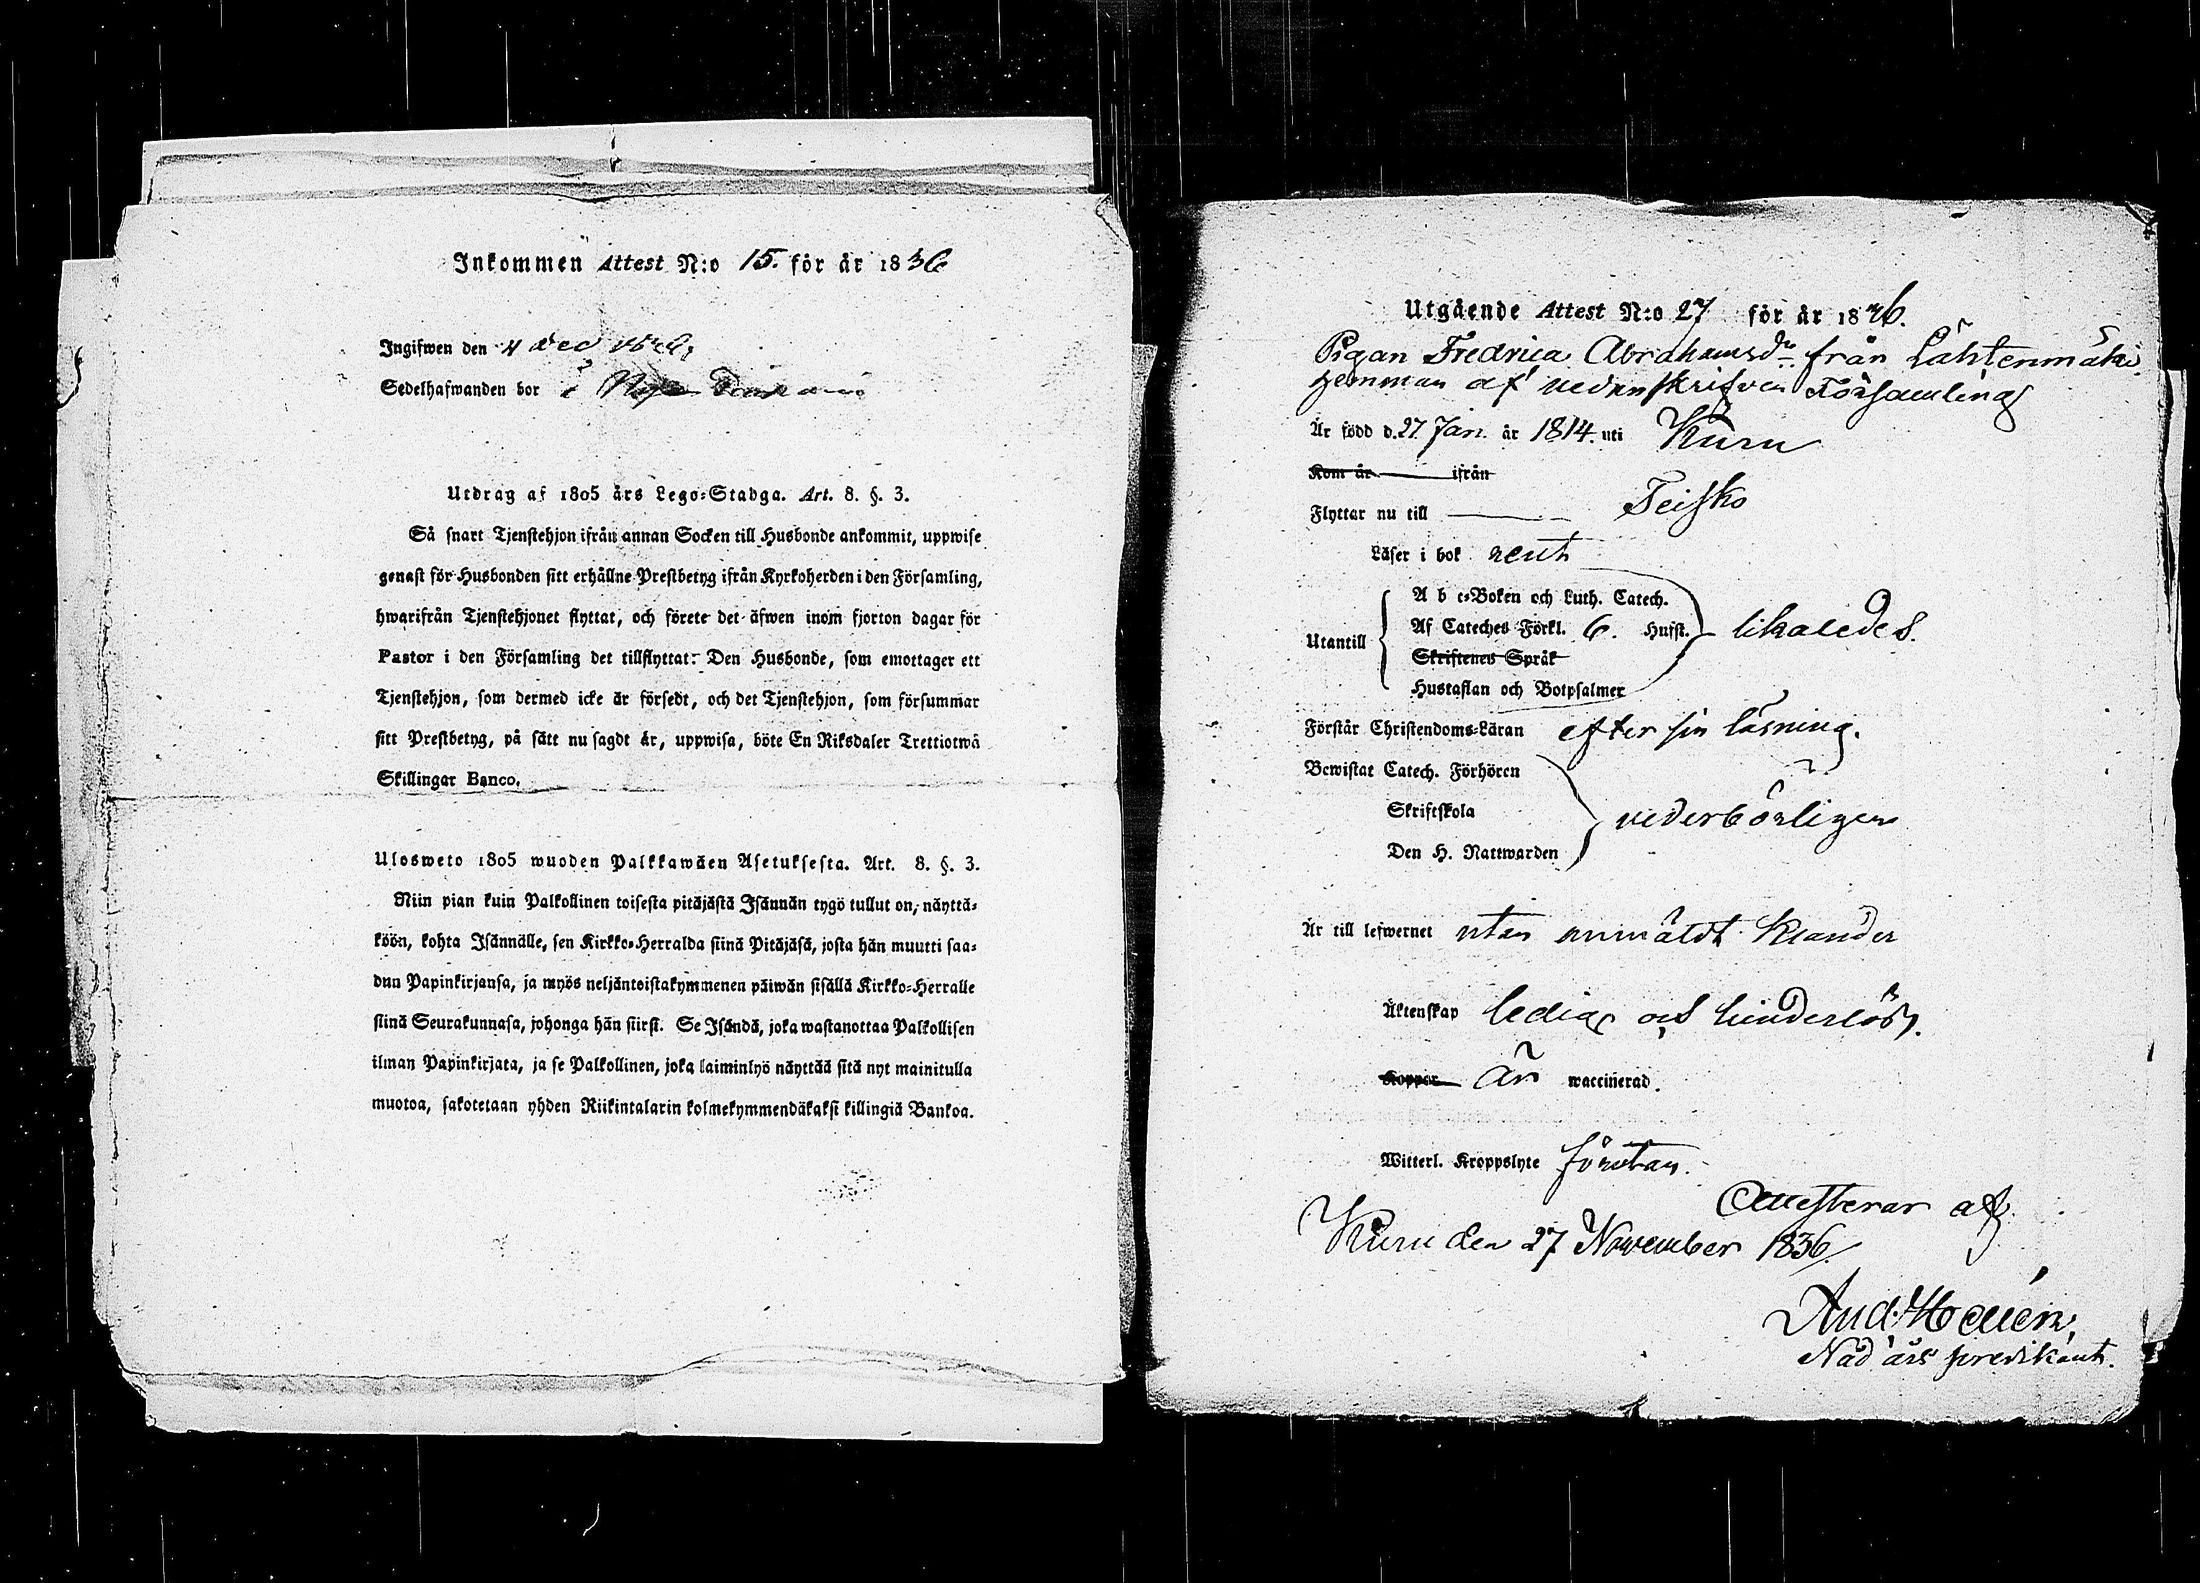 Inkommen Attest N:o 15. för år 1836
Ingifwen den 4 dec 1836
Sedelhafwanden bor i
Utdrag af 1805 års Lego-Stadga. Art. 8. §. 3.
Så snart Tjenstehjon ifrån annan Socken till Husbonde ankommit, uppwise
genast för Husbonden sitt erhållne Prestbetyg ifrån Kyrkoherden i den Församling,
hwarifrån Tjenstehjonet flyttat, och förete det äfwen inom fjorton dagar för
Pastor i den Församling det tillflyttat. Den Husbonde, som emottager ett
Tjenstehjon, som dermed icke är försedt, och det Tjenstehjon, som försummar
sitt Prestbetyg, på sätt nu sagdt är, uppwisa, böte En Riksdaler Trettiotwå
Skillingar Banco.
Ulosweto 1805 wuoden Palkkawäen Asetuksesta. Art. 8. §. 3.
Niin pian kuin Palkollinen toisesta pitäjästä Isännän tygö tullut on, näyttä-
köön, kohta Isännälle, sen Kirkko-Herralda siinä Pitäjäsä, josta hän muutti saa-
dun Papinkirjansa, ja myös neljäntoistakymmenen päiwän sisällä Kirkko-Herralle
siinä Seurakunnasa, johonga hän siirsi. Se Isändä, joka wastanottaa Palkollisen
ilman Papinkirjata, ja se Palkollinen, joka laiminlyö näyttää sitä nyt mainitulla
muotoa, sakotetaan yhden Riikintalarin kolmekymmendäkaksi killingiä Bankoa.
Utgående Attest N:o 27 för år 1836.
Pigan Fredrica Abrahamsdr från Lähtenmäki
hemman af nedanskrifven Församling
Är född d. 27 Jan. år 1814. uti Kuru
Kom år ifrån
Flyttar nu till Teisko
Läser i bok rent
A b c-Boken och Luth. Catech.
Utantill Af Cateches Förkl. 6. Hufst. likaledes.
Skriftenes Språk
Hustaflan och Botpsalmer
Förstår Christendoms-Läran efter sin läsning.
Bewistat Catech. Förhören
Skriftskola vederbörligen
Den H. Nattwarden
Är till lefwernet utan anmäldt klander
Äktenskap ledig och hinderlös.
Koppor är waccinerad.
Witterl. Kroppslyte förutan.
Attesterar af
Kuru den 27 November 1836.
And.
Nåd års predikant.